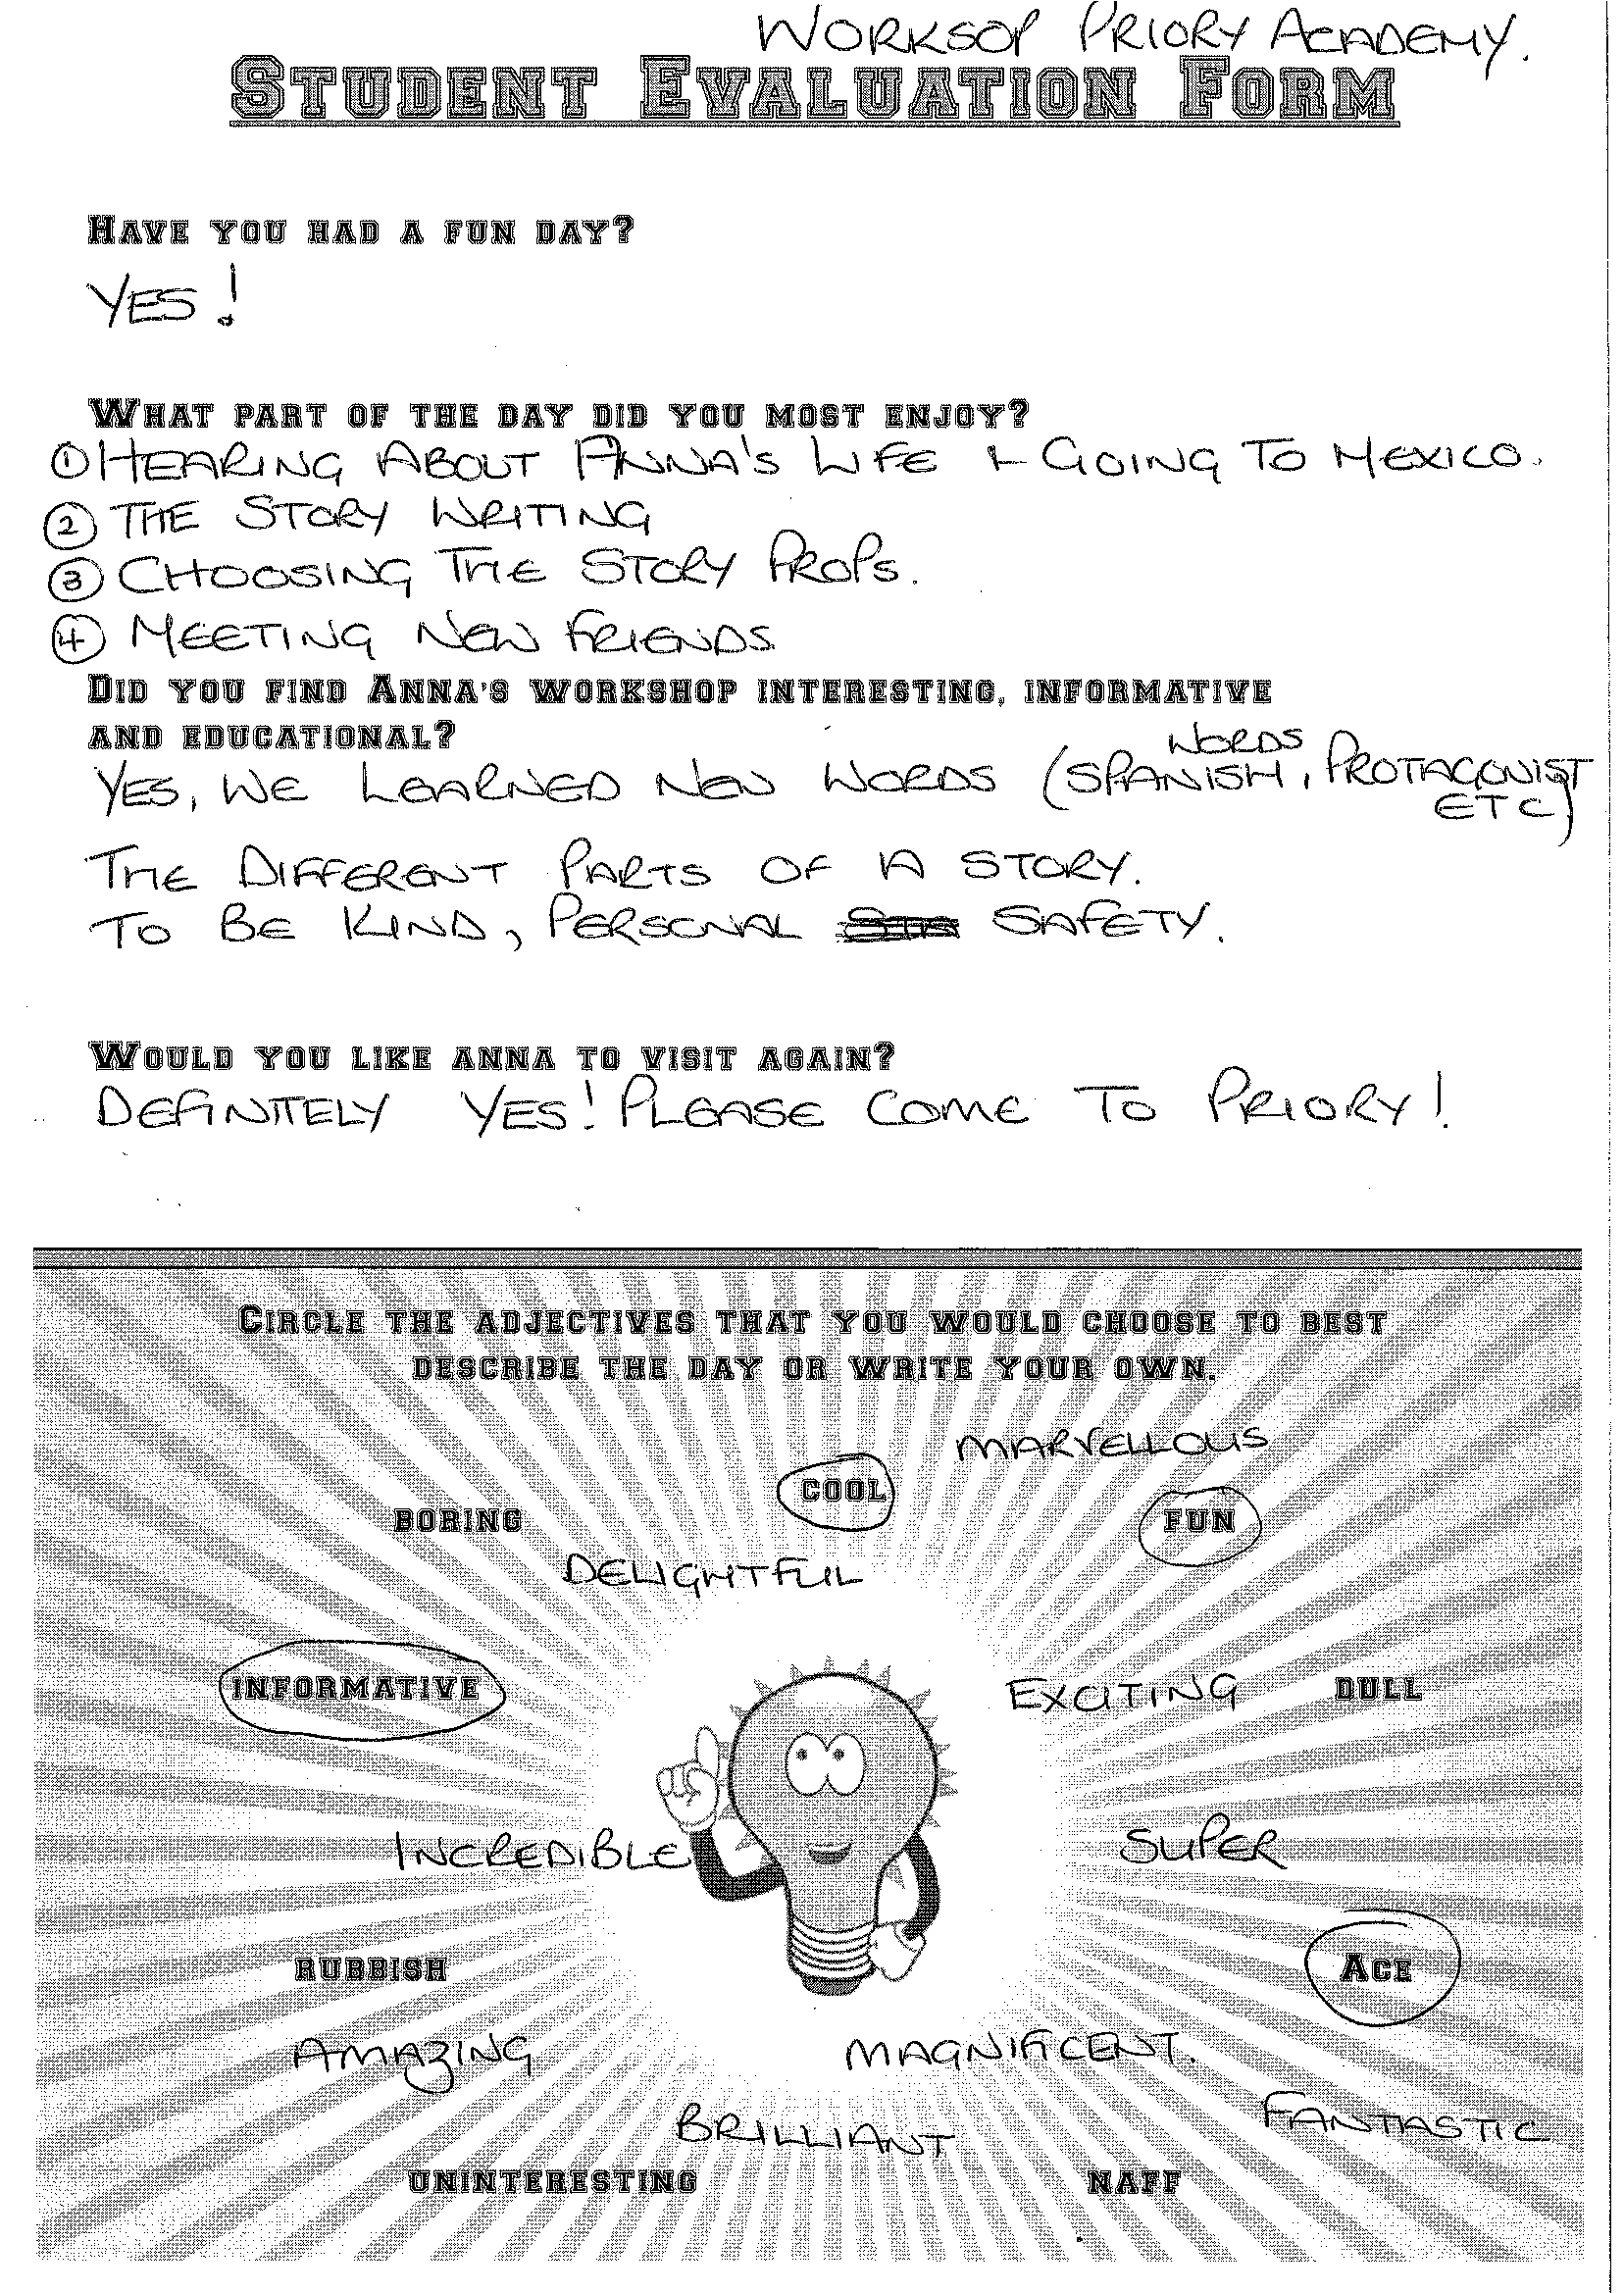 WORKSOP PRIORY ACADEMY.
STUDENT EVALUATION FORM
HAVE YOU HAD A FUN DAY?
YES!
WHAT PART OF THE DAY DID YOU MOST ENJOY?
① HEARING ABOUT ANNA'S LIFE & GOING TO MEXICO.
② THE STORY WRITING
③ CHOOSING THE STORY PROPS.
④ MEETING NEW FRIENDS
DID YOU FIND ANNA'S WORKSHOP INTERESTING, INFORMATIVE
AND EDUCATIONAL?
YES, WE LEARNED NEW WORDS (SPANISH WORDS, PROTAGONIST
ETC)
THE DIFFERENT PARTS OF A STORY.
TO BE KIND, PERSONAL SAFETY.
WOULD YOU LIKE ANNA TO VISIT AGAIN?
DEFINITELY YES! PLEASE COME TO PRIORY!
CIRCLE THE ADJECTIVES THAT YOU WOULD CHOOSE TO BEST
DESCRIBE THE DAY OR WRITE YOUR OWN.
MARVELLOUS
COOL
BORING
FUN
DELIGHTFUL
INFORMATIVE
EXCITING
DULL
INCREDIBLE
SUPER
RUBBISH
ACE
AMAZING
MAGNIFICENT.
BRILLIANT
FANTASTIC
UNINTERESTING
NAFF